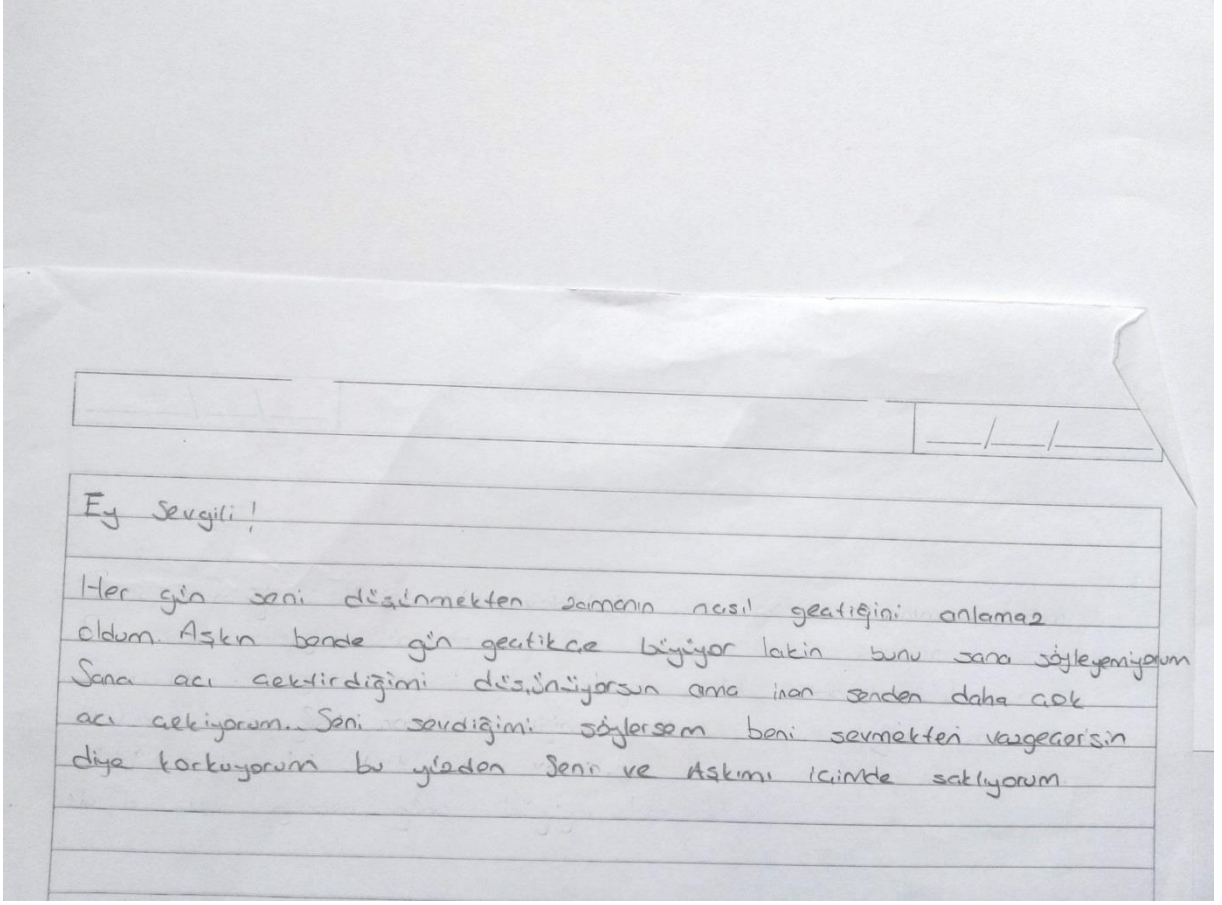 Ey Sevgili!
Her gün seni düşünmekten zamanın nasıl geçtiğini anlamaz
oldum. Aşkın bende gün geçtikçe büyüyor lakin bunu sana söyleyemiyorum
Sana acı çektirdiğimi düşünüyorsun ama inan senden daha çok
acı çekiyorum. Seni sevdiğimi söylersem beni sevmekten vazgeçersin
diye korkuyorum bu yüzden Seni ve Aşkımı içimde saklıyorum